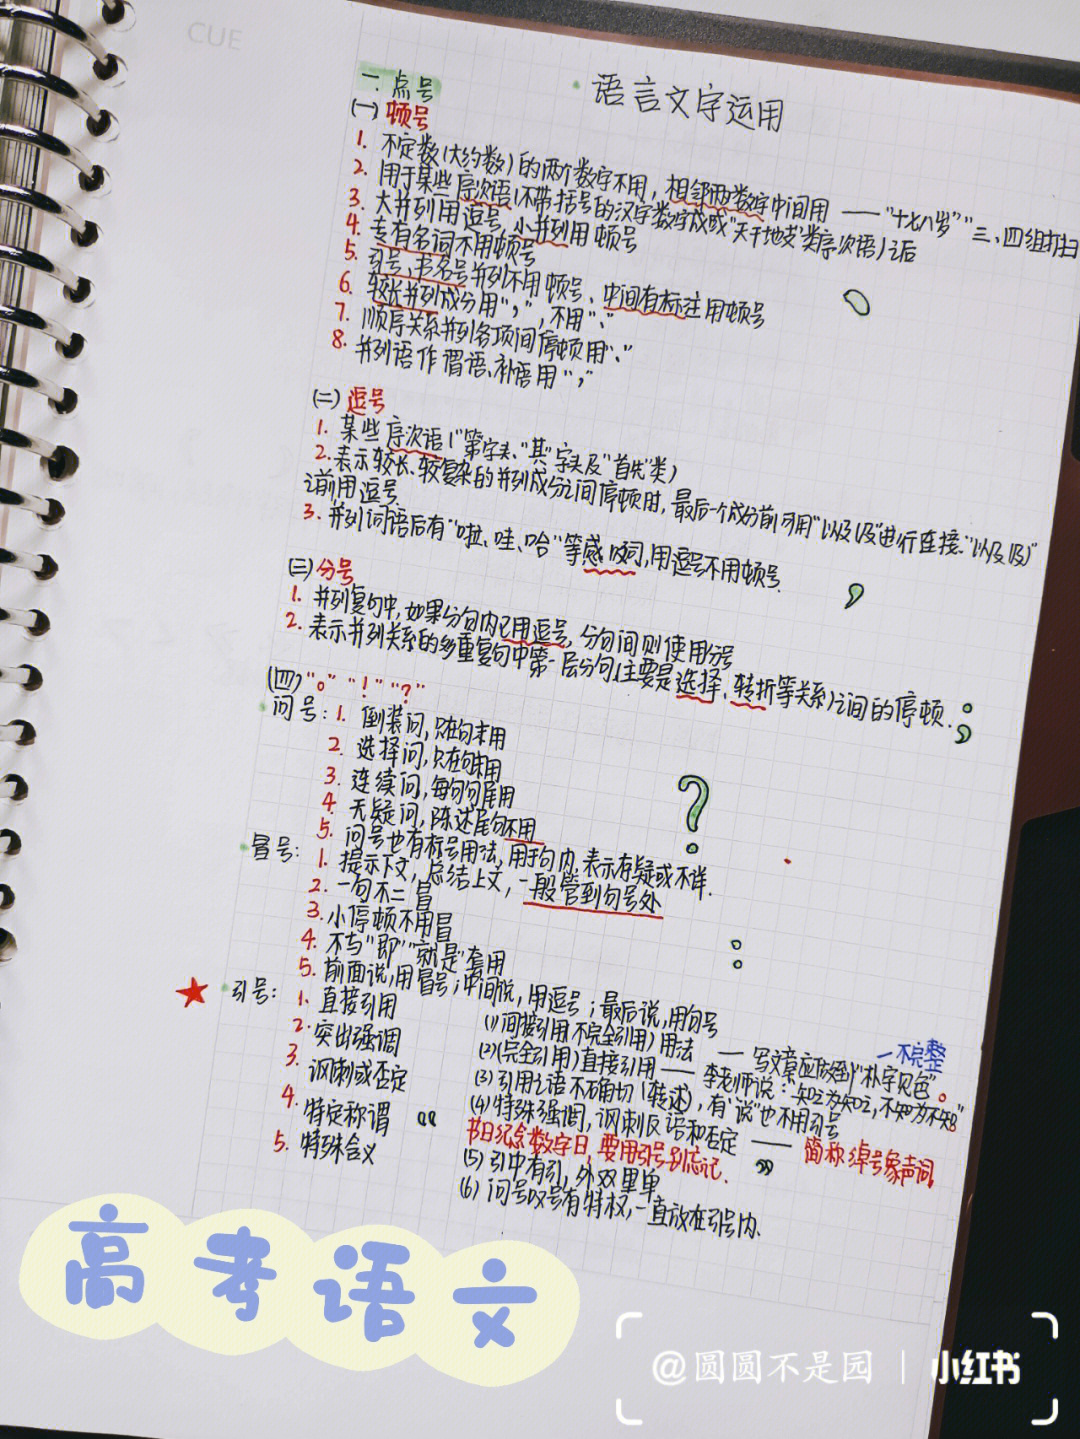 CUE
语言文字运用
一.点号
(一) 顿号
1. 不定数(大约数)的两个数字不用,相邻两数字中间用 ——"十七八岁""三、四组打扫
2. 用于某些序次语(不带括号的汉字数字或"天干地支"类序次语)之后
3. 大并列用逗号,小并列用顿号
4. 专有名词不用顿号
5. 引号、书名号并列不用顿号、中间有标注用顿号
6. 较长并列成分用",",不用"、"
7. 顺序关系并列各项间停顿用"、"
8. 并列语作谓语、补语用","
(二) 逗号
1. 某些序次语("第"字头、"其"字头及"首先"类)
2. 表示较长、较复杂的并列成分之间停顿时,最后一个成分前可用"以及(及)"进行连接."以及(及)"
之前用逗号.
3. 并列词语后有"啦、哇、哈"等感叹词,用逗号不用顿号.
(三) 分号
1. 并列复句中,如果分句内已用逗号,分句间则使用分号
2. 表示并列关系的多重复句中第一层分句(主要是选择、转折等关系)之间的停顿.
(四) "。" "!" "?"
问号: 1. 倒装问,只在句末用
2. 选择问,只在句末用
3. 连续问,每句句尾用
4. 无疑问,陈述尾句不用
5. 问号也有标号用法,用于句内.表示存疑或不详.
冒号: 1. 提示下文,总结上文,一般管到句号处
2. 一句不二冒
3. 小停顿不用冒
4. 不与"即""就是"套用
5. 前面说,用冒号;中间说,用逗号;最后说,用句号
引号: 1. 直接引用
2. 突出强调
3. 讽刺或否定
4. 特定称谓
5. 特殊含义
(1) 间接引用(不完全引用)用法 —— 写文章应做到"朴字见色"。
一不完整
(2) (完全引用)直接引用 —— 李老师说:"知之为知之,不知为不知。"
(3) 引用之语不确切(转述),有"说"也不用引号
(4) 特殊强调,讽刺反语和否定 —— 简称绰号象声词
节日纪念数字日,要用引号别忘记.
(5) 引中有引,外双里单
(6) 问号叹号有特权,一直放在引号内.
高考语文
@圆圆不是园 | 小红书